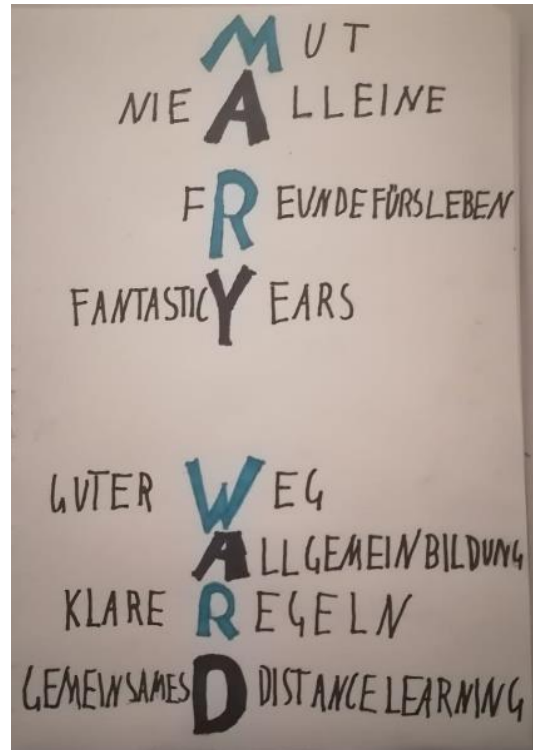 MUT
NIE ALLEINE
FREUNDEFÜRSLEBEN
FANTASTIC YEARS
GUTER WEG
ALLGEMEINBILDUNG
KLARE REGELN
GEMEINSAMES D DISTANCE LEARNING